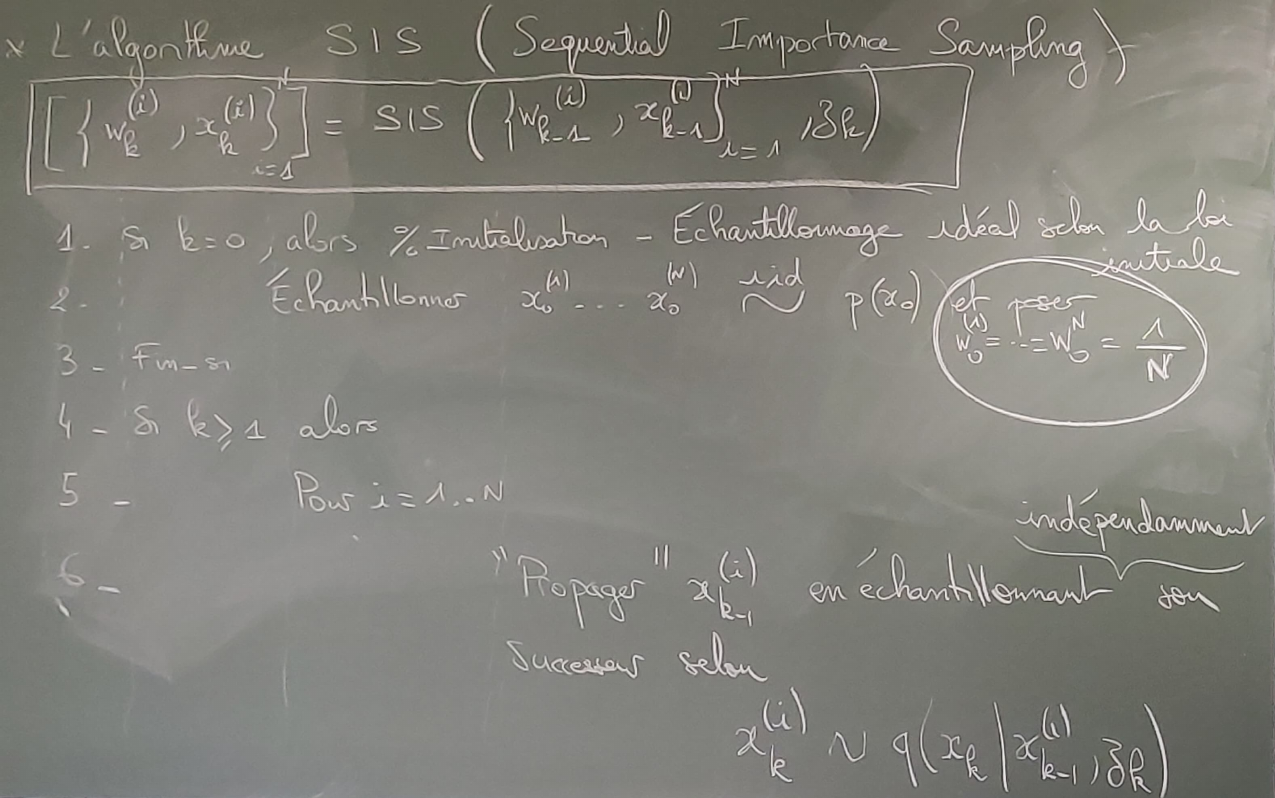 x L'algorithme SIS (Sequential Importance Sampling)
[{w_k^(i), x_k^(i)}_{i=1}^N] = SIS ({w_{k-1}^(i), x_{k-1}^(i)}_{i=1}^N, z_k)
1. Si k=0, alors % Initialisation - Échantillonnage idéal selon la loi
initiale
2. Échantillonner x_0^(1) ... x_0^(N) iid ~ p(x_0) et poser
w_0^(1) = ... = w_0^N = 1/N
3 - Fin-si
4 - Si k ≥ 1 alors
5 - Pour i = 1..N
indépendamment
6 - "Propager" x_{k-1}^(i) en échantillonnant son
successeur selon
x_k^(i) ~ q(x_k | x_{k-1}^(i), z_k)